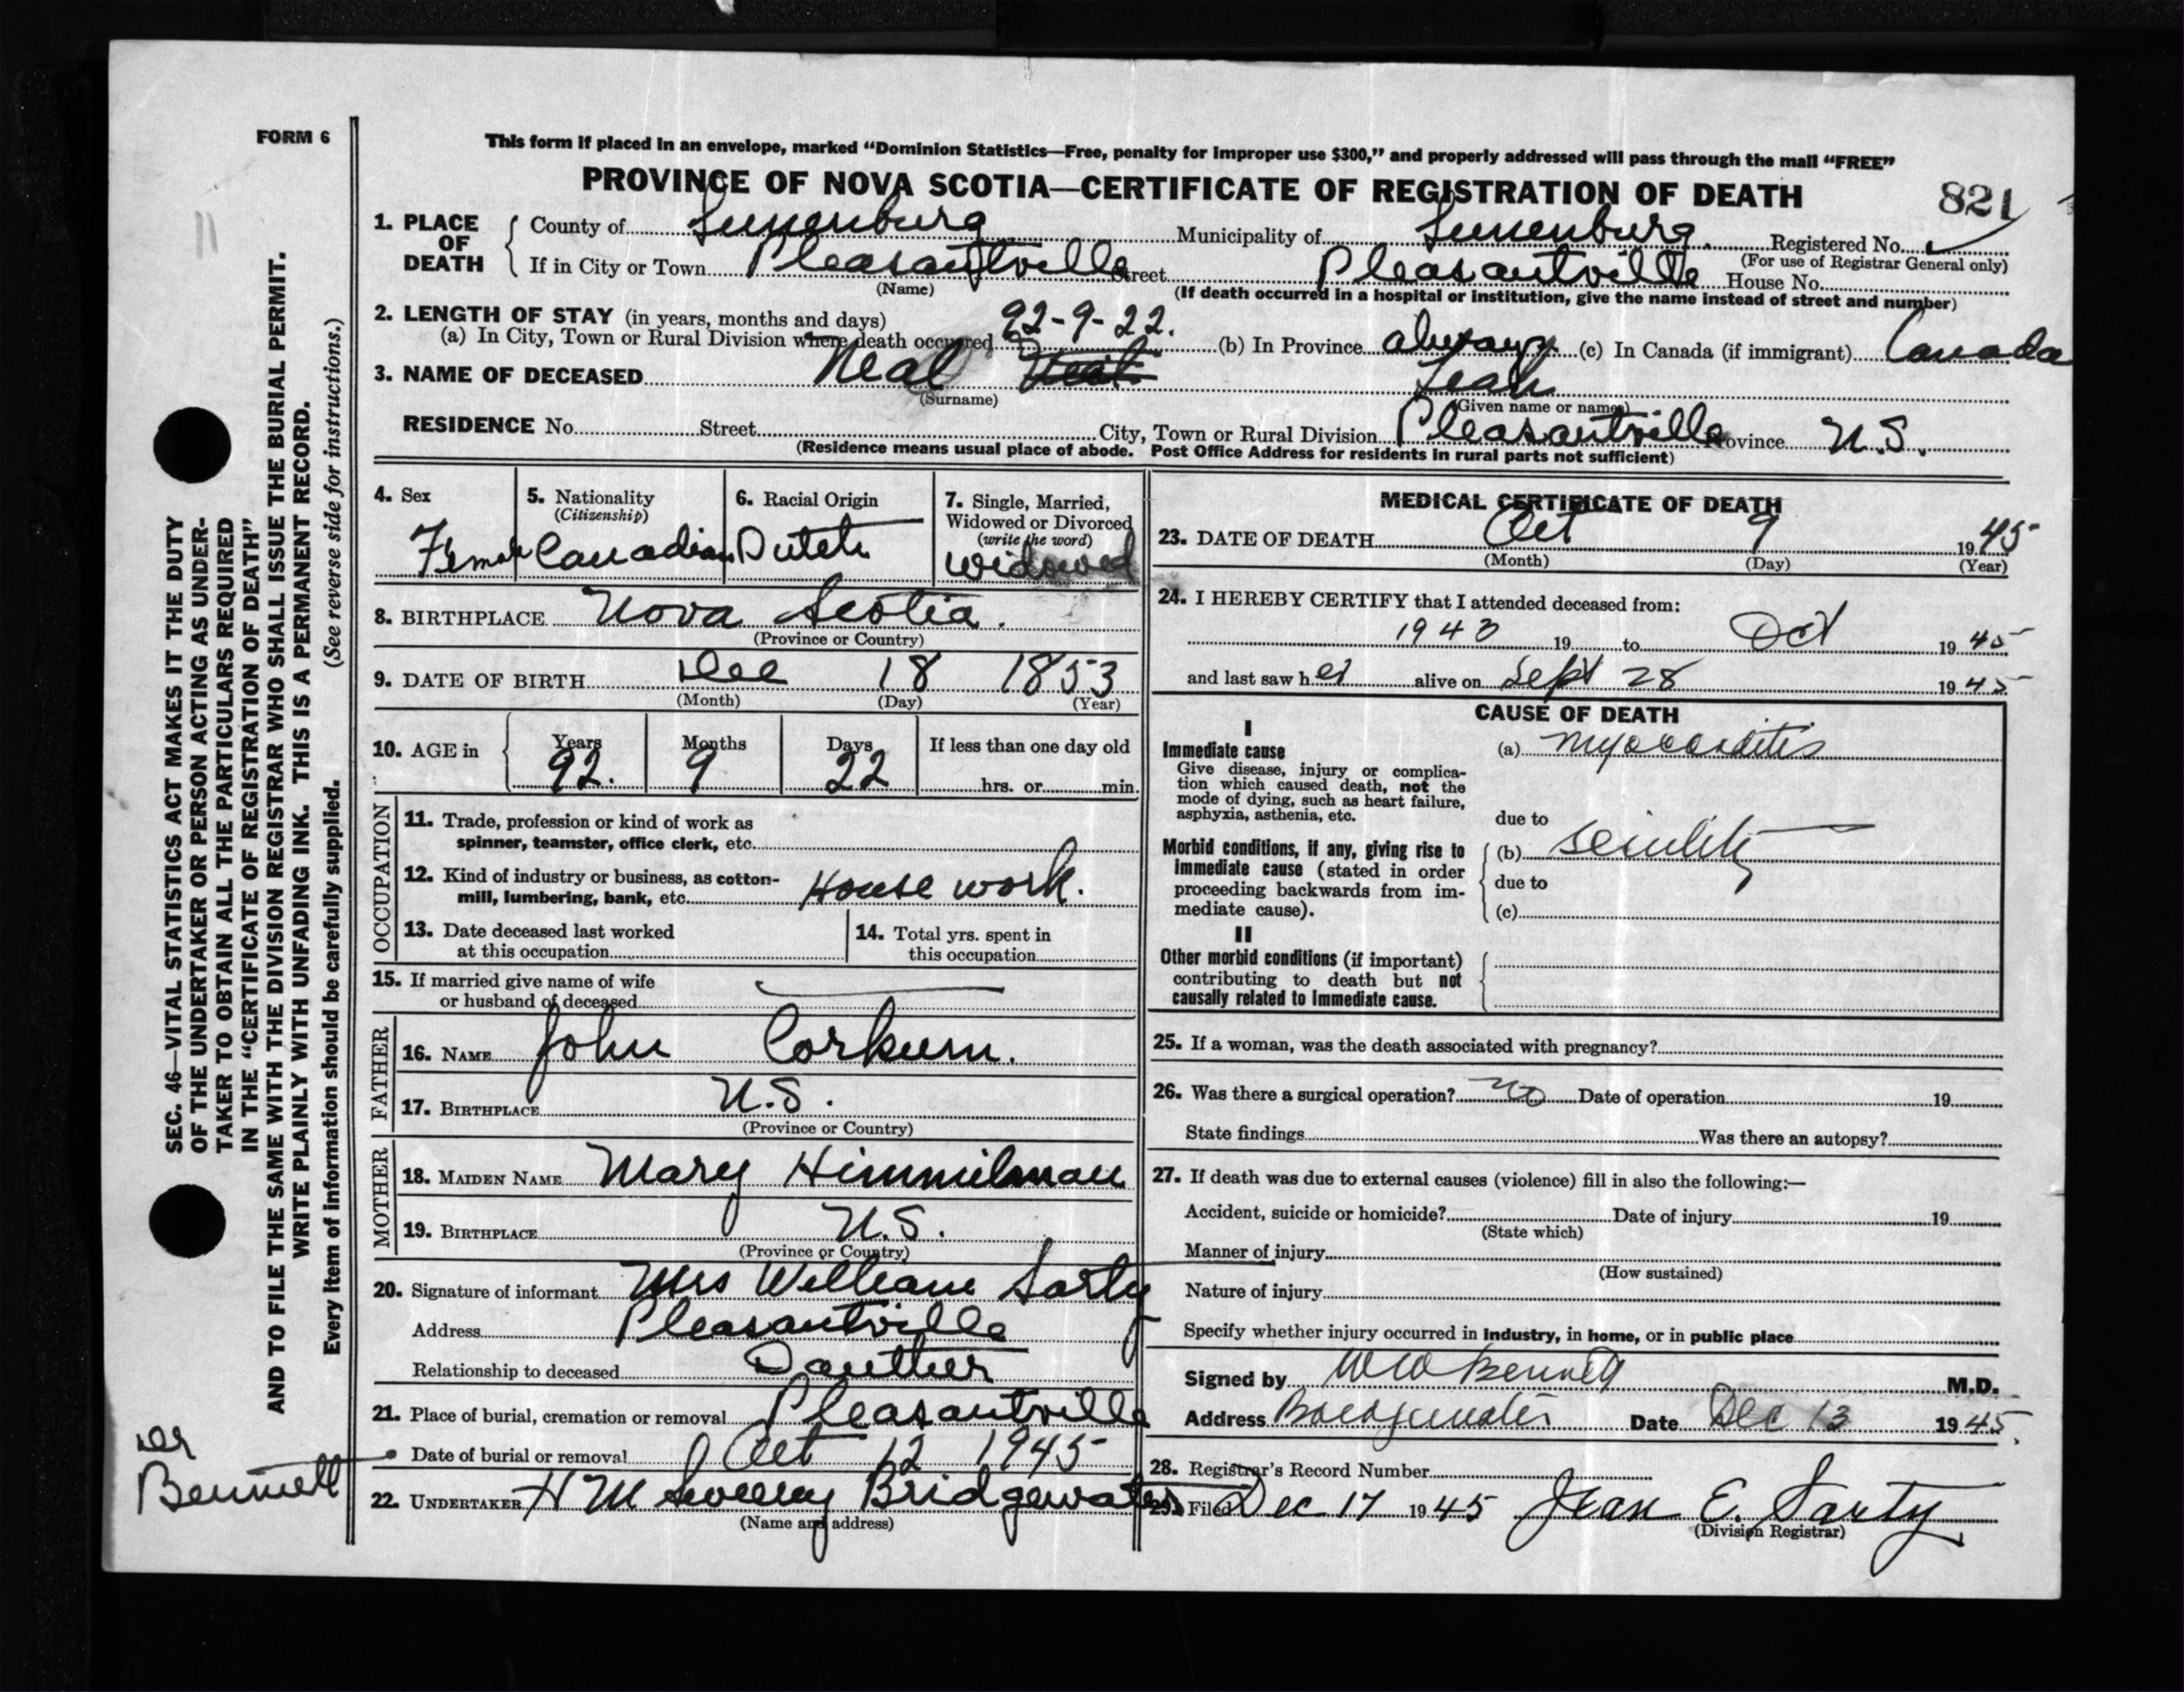 FORM 6
This form if placed in an envelope, marked “Dominion Statistics—Free, penalty for improper use $300,” and properly addressed will pass through the mail “FREE”
PROVINCE OF NOVA SCOTIA—CERTIFICATE OF REGISTRATION OF DEATH
821
1. PLACE OF DEATH
County of Lunenburg Municipality of Lunenburg. Registered No.
(For use of Registrar General only)
If in City or Town Pleasantville Street Pleasantville House No.
(Name) (If death occurred in a hospital or institution, give the name instead of street and number)
2. LENGTH OF STAY (in years, months and days)
(a) In City, Town or Rural Division where death occurred 92-9-22. (b) In Province always (c) In Canada (if immigrant) Canada
3. NAME OF DECEASED Neal Leah
(Surname) (Given name or names)
RESIDENCE No. Street City, Town or Rural Division Pleasantville Province N.S.
(Residence means usual place of abode. Post Office Address for residents in rural parts not sufficient)
4. Sex
Female
5. Nationality
(Citizenship)
Canadian
6. Racial Origin
Dutch
7. Single, Married,
Widowed or Divorced
(write the word)
widowed
8. BIRTHPLACE Nova Scotia.
(Province or Country)
9. DATE OF BIRTH Dec 18 1853
(Month) (Day) (Year)
10. AGE in
Years Months Days If less than one day old
92. 9 22 hrs. or min.
OCCUPATION
11. Trade, profession or kind of work as
spinner, teamster, office clerk, etc.
12. Kind of industry or business, as cotton-
mill, lumbering, bank, etc. House work.
13. Date deceased last worked
at this occupation
14. Total yrs. spent in
this occupation
15. If married give name of wife
or husband of deceased
FATHER
16. NAME John Corkum.
17. BIRTHPLACE N.S.
(Province or Country)
MOTHER
18. MAIDEN NAME Mary Himmilman
19. BIRTHPLACE N.S.
(Province or Country)
20. Signature of informant Mrs William Sarty
Address Pleasantville
Relationship to deceased Douther
21. Place of burial, cremation or removal Pleasantville
Date of burial or removal Oct 12 1945
22. UNDERTAKER H M Sweeny Bridgewater
(Name and address)
MEDICAL CERTIFICATE OF DEATH
23. DATE OF DEATH Oct 9 1945
(Month) (Day) (Year)
24. I HEREBY CERTIFY that I attended deceased from:
1943 19 to Oct 1945
and last saw her alive on Sept 28 1945
CAUSE OF DEATH
I
Immediate cause
Give disease, injury or complica-
tion which caused death, not the
mode of dying, such as heart failure,
asphyxia, asthenia, etc.
(a) Myocarditis
due to
Morbid conditions, if any, giving rise to
immediate cause (stated in order
proceeding backwards from im-
mediate cause).
(b) senility
due to
(c)
II
Other morbid conditions (if important)
contributing to death but not
causally related to immediate cause.
25. If a woman, was the death associated with pregnancy?
26. Was there a surgical operation? no Date of operation 19
State findings Was there an autopsy?
27. If death was due to external causes (violence) fill in also the following:—
Accident, suicide or homicide? Date of injury 19
(State which)
Manner of injury
(How sustained)
Nature of injury
Specify whether injury occurred in industry, in home, or in public place
Signed by W W Bennett M.D.
Address Bridgewater Date Dec 13 1945.
28. Registrar's Record Number
29. Filed Dec 17 1945 Jean E. Sarty
(Division Registrar)
SEC. 46—VITAL STATISTICS ACT MAKES IT THE DUTY
OF THE UNDERTAKER OR PERSON ACTING AS UNDER-
TAKER TO OBTAIN ALL THE PARTICULARS REQUIRED
IN THE “CERTIFICATE OF REGISTRATION OF DEATH”
AND TO FILE THE SAME WITH THE DIVISION REGISTRAR WHO SHALL ISSUE THE BURIAL PERMIT.
WRITE PLAINLY WITH UNFADING INK. THIS IS A PERMANENT RECORD.
Every item of information should be carefully supplied. (See reverse side for instructions.)
Dr
Bennett